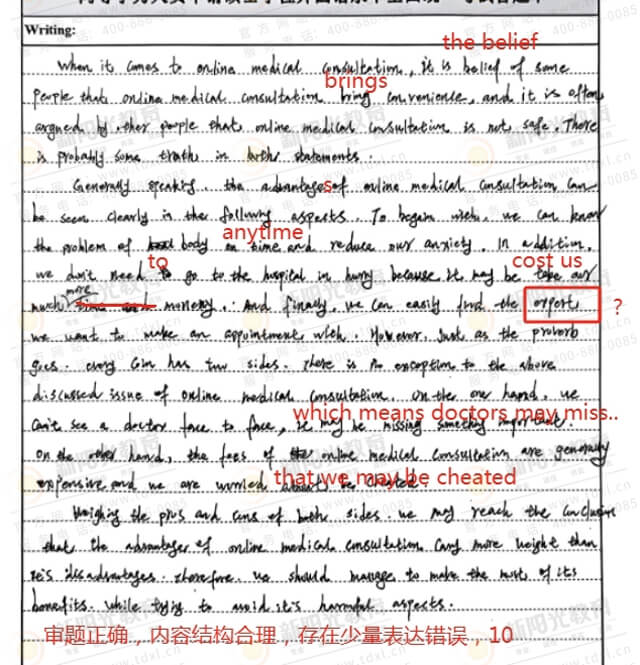 Writing:
the belief
When it comes to online medical consultation, it is belief of some
brings
people that online medical consultation bring convenience, and it is often
argued by other people that online medical consultation is not safe. There
is probably some truth in both statements.
Generally speaking, the advantages of online medical consultation can
be seen clearly in the following aspects. To began with, we can know
anytime
the problem of body on time and reduce our anxiety. In addition,
to
cost us
we don't need to go to the hospital in hurry because it may be take our
much more money. And finally, we can easily find the orpert
?
we want to make an appointment with. However, just as the proverb
goes, every coin has two sides. There is no exception to the above
discussed issue of online medical consultation. On the one hand, we
which means doctors may miss..
can't see a doctor face to face, it may be missing something important.
On the other hand, the fees of online medical consultation are generally
that we may be cheated
expensive and we are worried
Weighing the pros and cons of both sides, we may reach the conclusion
that the advantages of online medical consultation carry more weight than
it's disadvantages. Therefore, we should manage to make the most of its
benefits. While trying to avoid it's harmful aspects.
审题正确，内容结构合理，存在少量表达错误，10
新阳光教育
www.tdxl.cn
官方网站
电话：400-888-0085